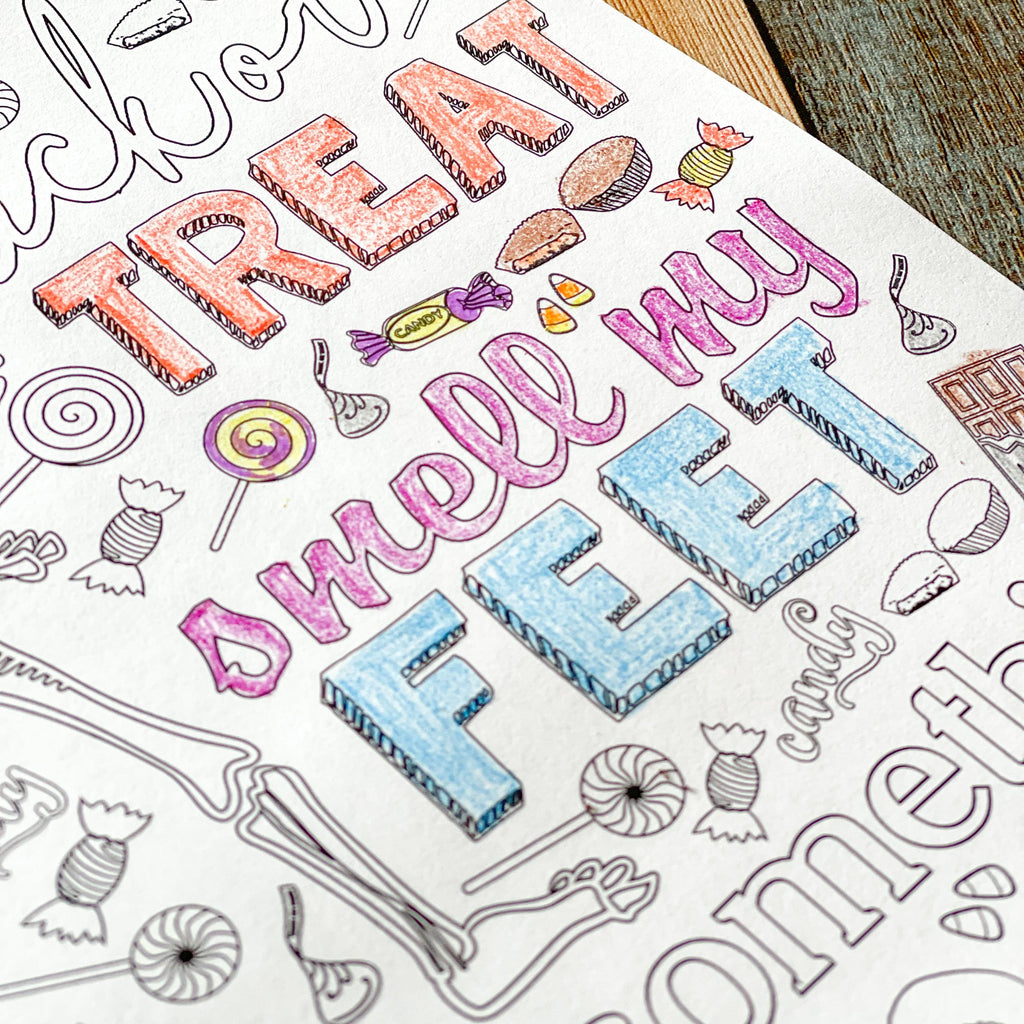 ick or
TREAT
CANDY
smell my
FEET
candy
ometh